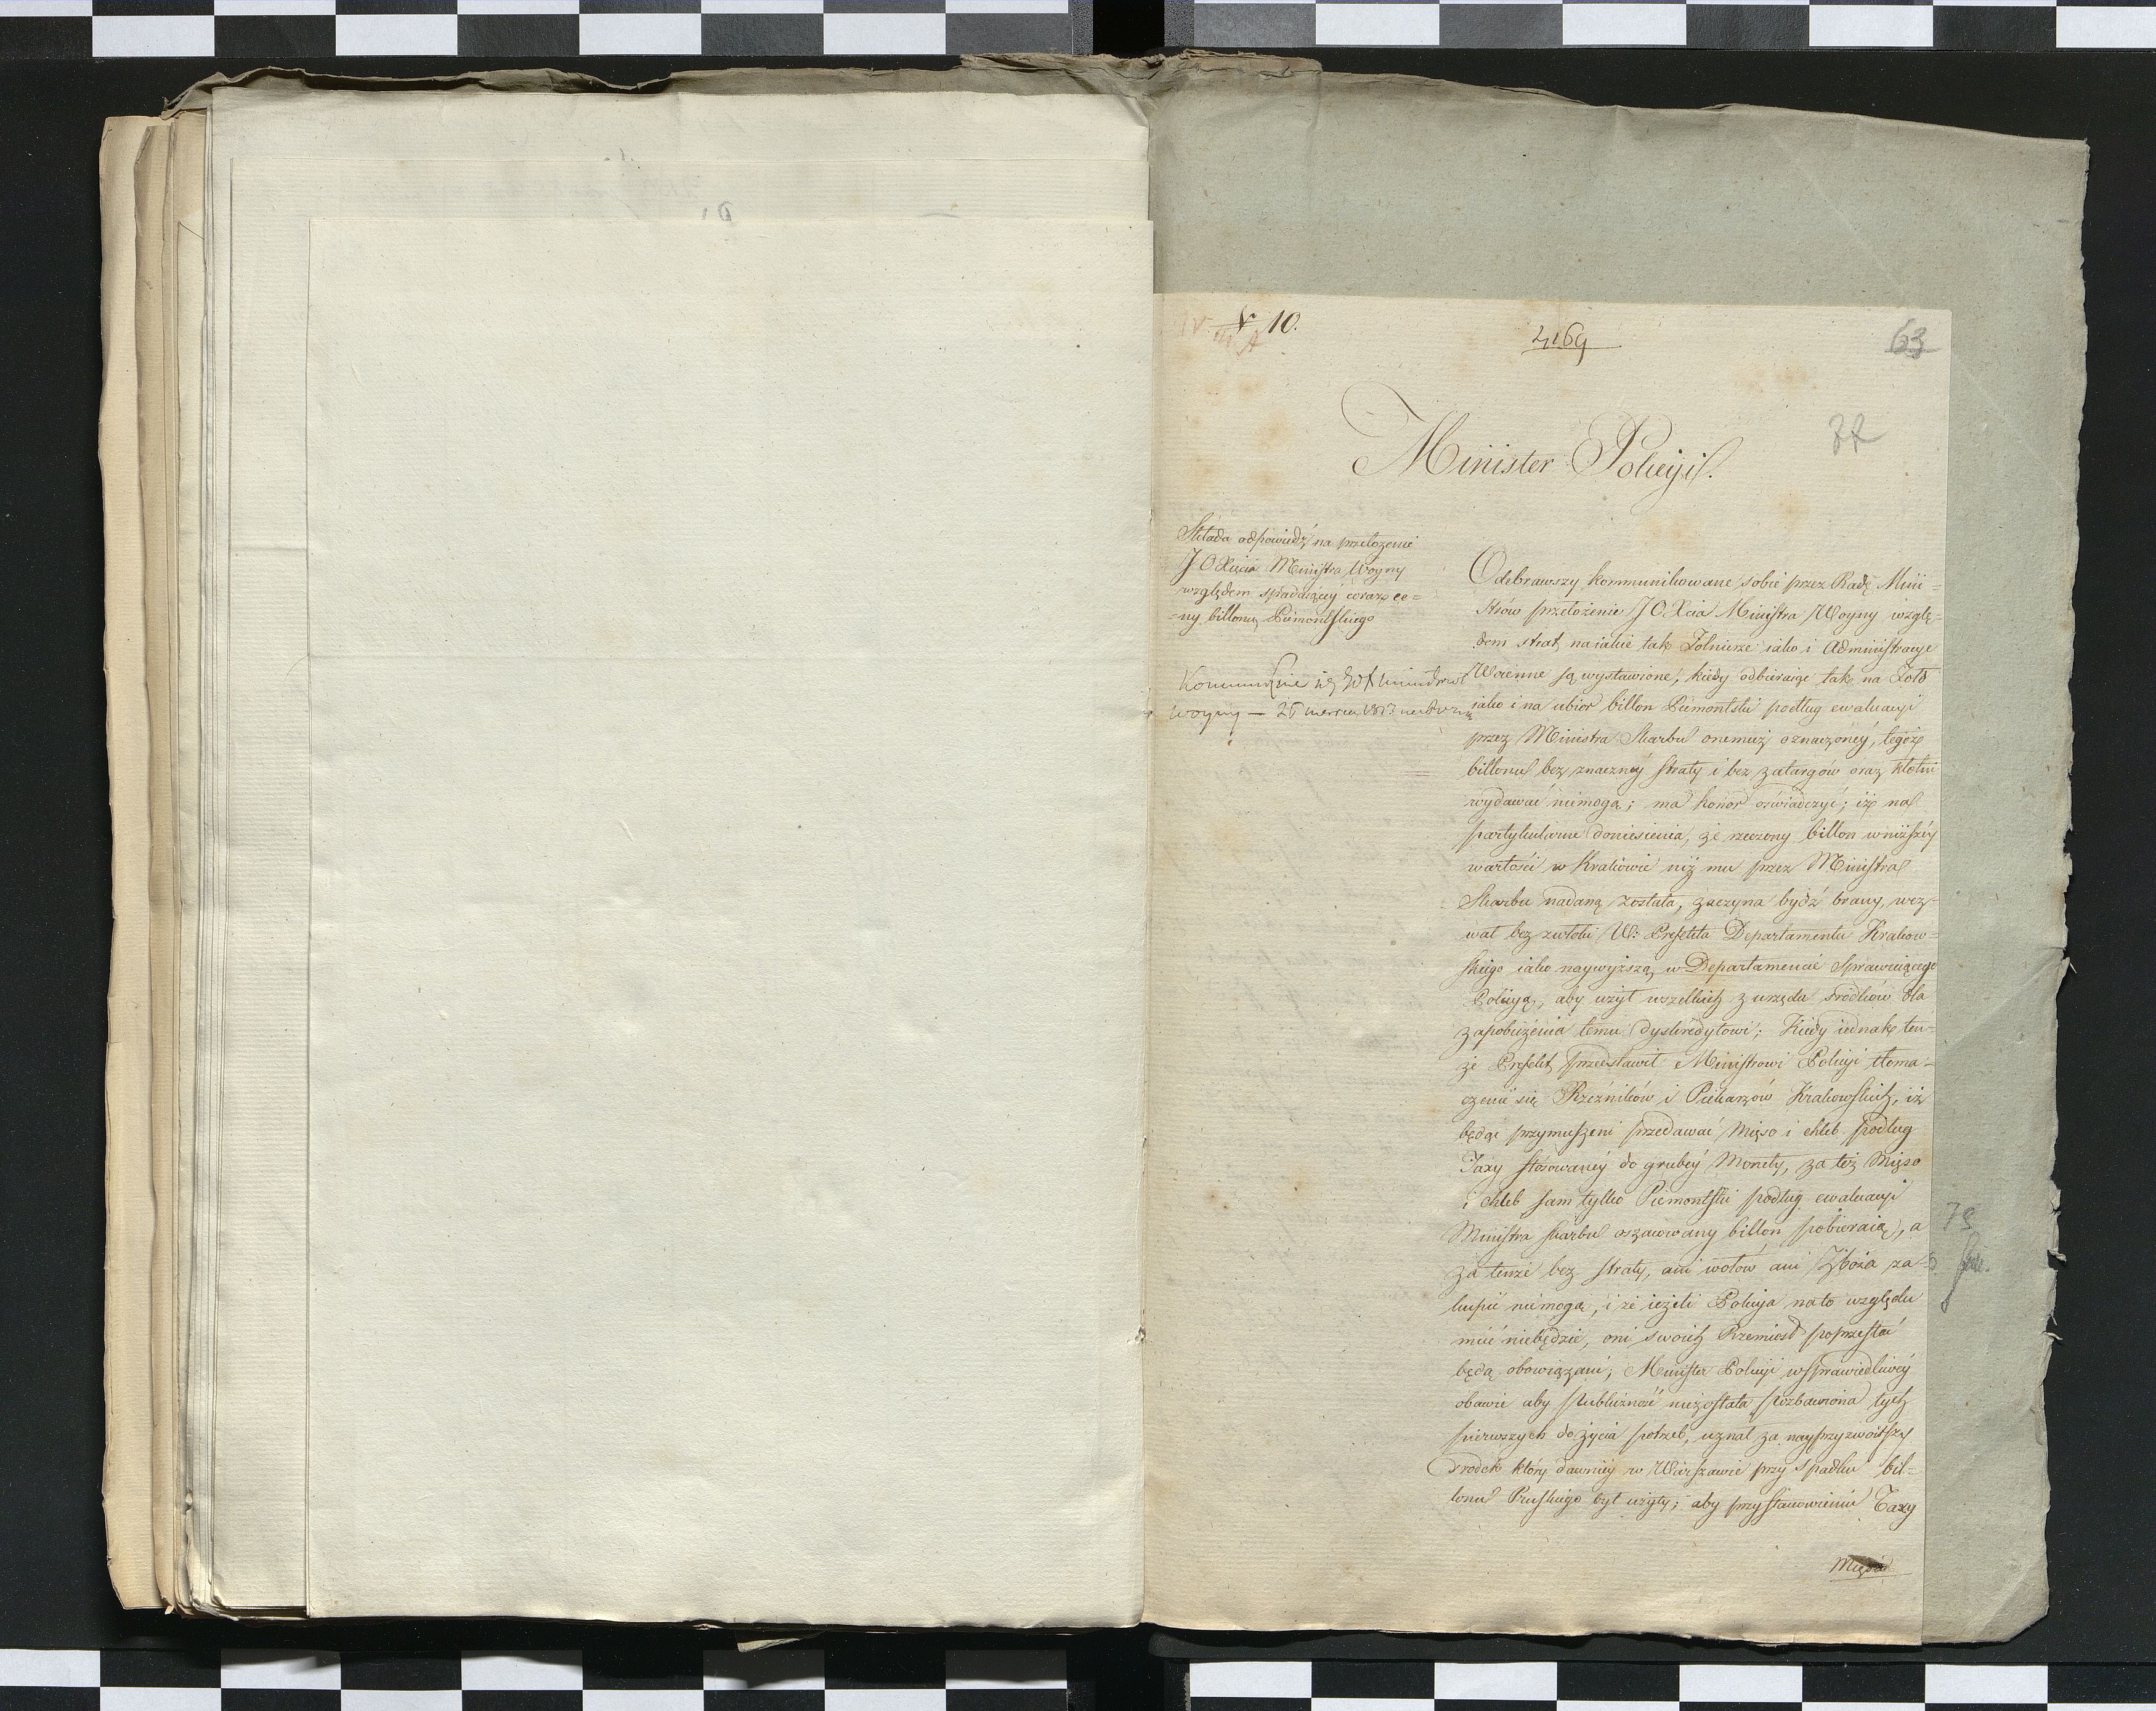 V 10.
4169
63
Minister Policyi.
Składa odpowiedź na przełożenie
J O Xięcia Ministra Woyny
względem spadaiącey coraz ce=
=ny billonu Piemontskiego
Woyny —
Odebrawszy kommunikowane sobie przez Radę Mini=
strów przełożenie J O. Xcia Ministra Woyny wzglę=
dem strat, na iakie tak Żołnierze iako i Administracye
Woienne są wystawione, kiedy odbieraiąc tak na Żołd
iako i na ubior billon Piemontski podług ewaluacyi
przez Ministra Skarbu onemuż oznaczoney, tegoż
billonu bez znaczney straty i bez zatargów oraz kłotni
wydawać niemogą; ma honor oświadczyć; iż na
partykularne doniesienia, że rzeczony billon w niższéy
wartości w Krakowie niż mu przez Ministra
Skarbu nadaną została, zaczyna bydź brany, wez=
wał bez zwłoki W: Prefekta Departamentu Krakow=
skiego iako naywyższą w Departamencie sprawuiącego
Policyą, aby użył wszelkich z urzędu srodków dla
zapobieżenia temu dyskredytowi; Kiedy iednak ten=
że Prefekt przedstawił Ministrowi Policyi tłoma=
czenie się Rzeźników i Piekarzów Krakowskich, iż
będąc przymuszeni przedawać Mięso i chleb podług
Taxy stósowanéy do grubéy Monety, za też Mięso
i chleb sam tylko Piemontski podług ewaluacyi
Ministra Skarbu oszacowany billon pobieraią, a
za tenże bez straty, ani wołów ani Zboża za=
kupić niemogą, i że ieżeli Policyja na to względu
mieć niebędzie, oni swoich Rzemiosł poprzestać
będą obowiązani; Minister Policyi w sprawiedliwéy
obawie aby publiczność niezostała pozbawiona tych
pierwszych do życia potrzeb, uznał za nayprzyzwoitszy
srodek który dawniéy w Warszawie przy spadku bil=
lonu Pruskiego był użyty; aby przy stanowieniu Taxy
Mięsa